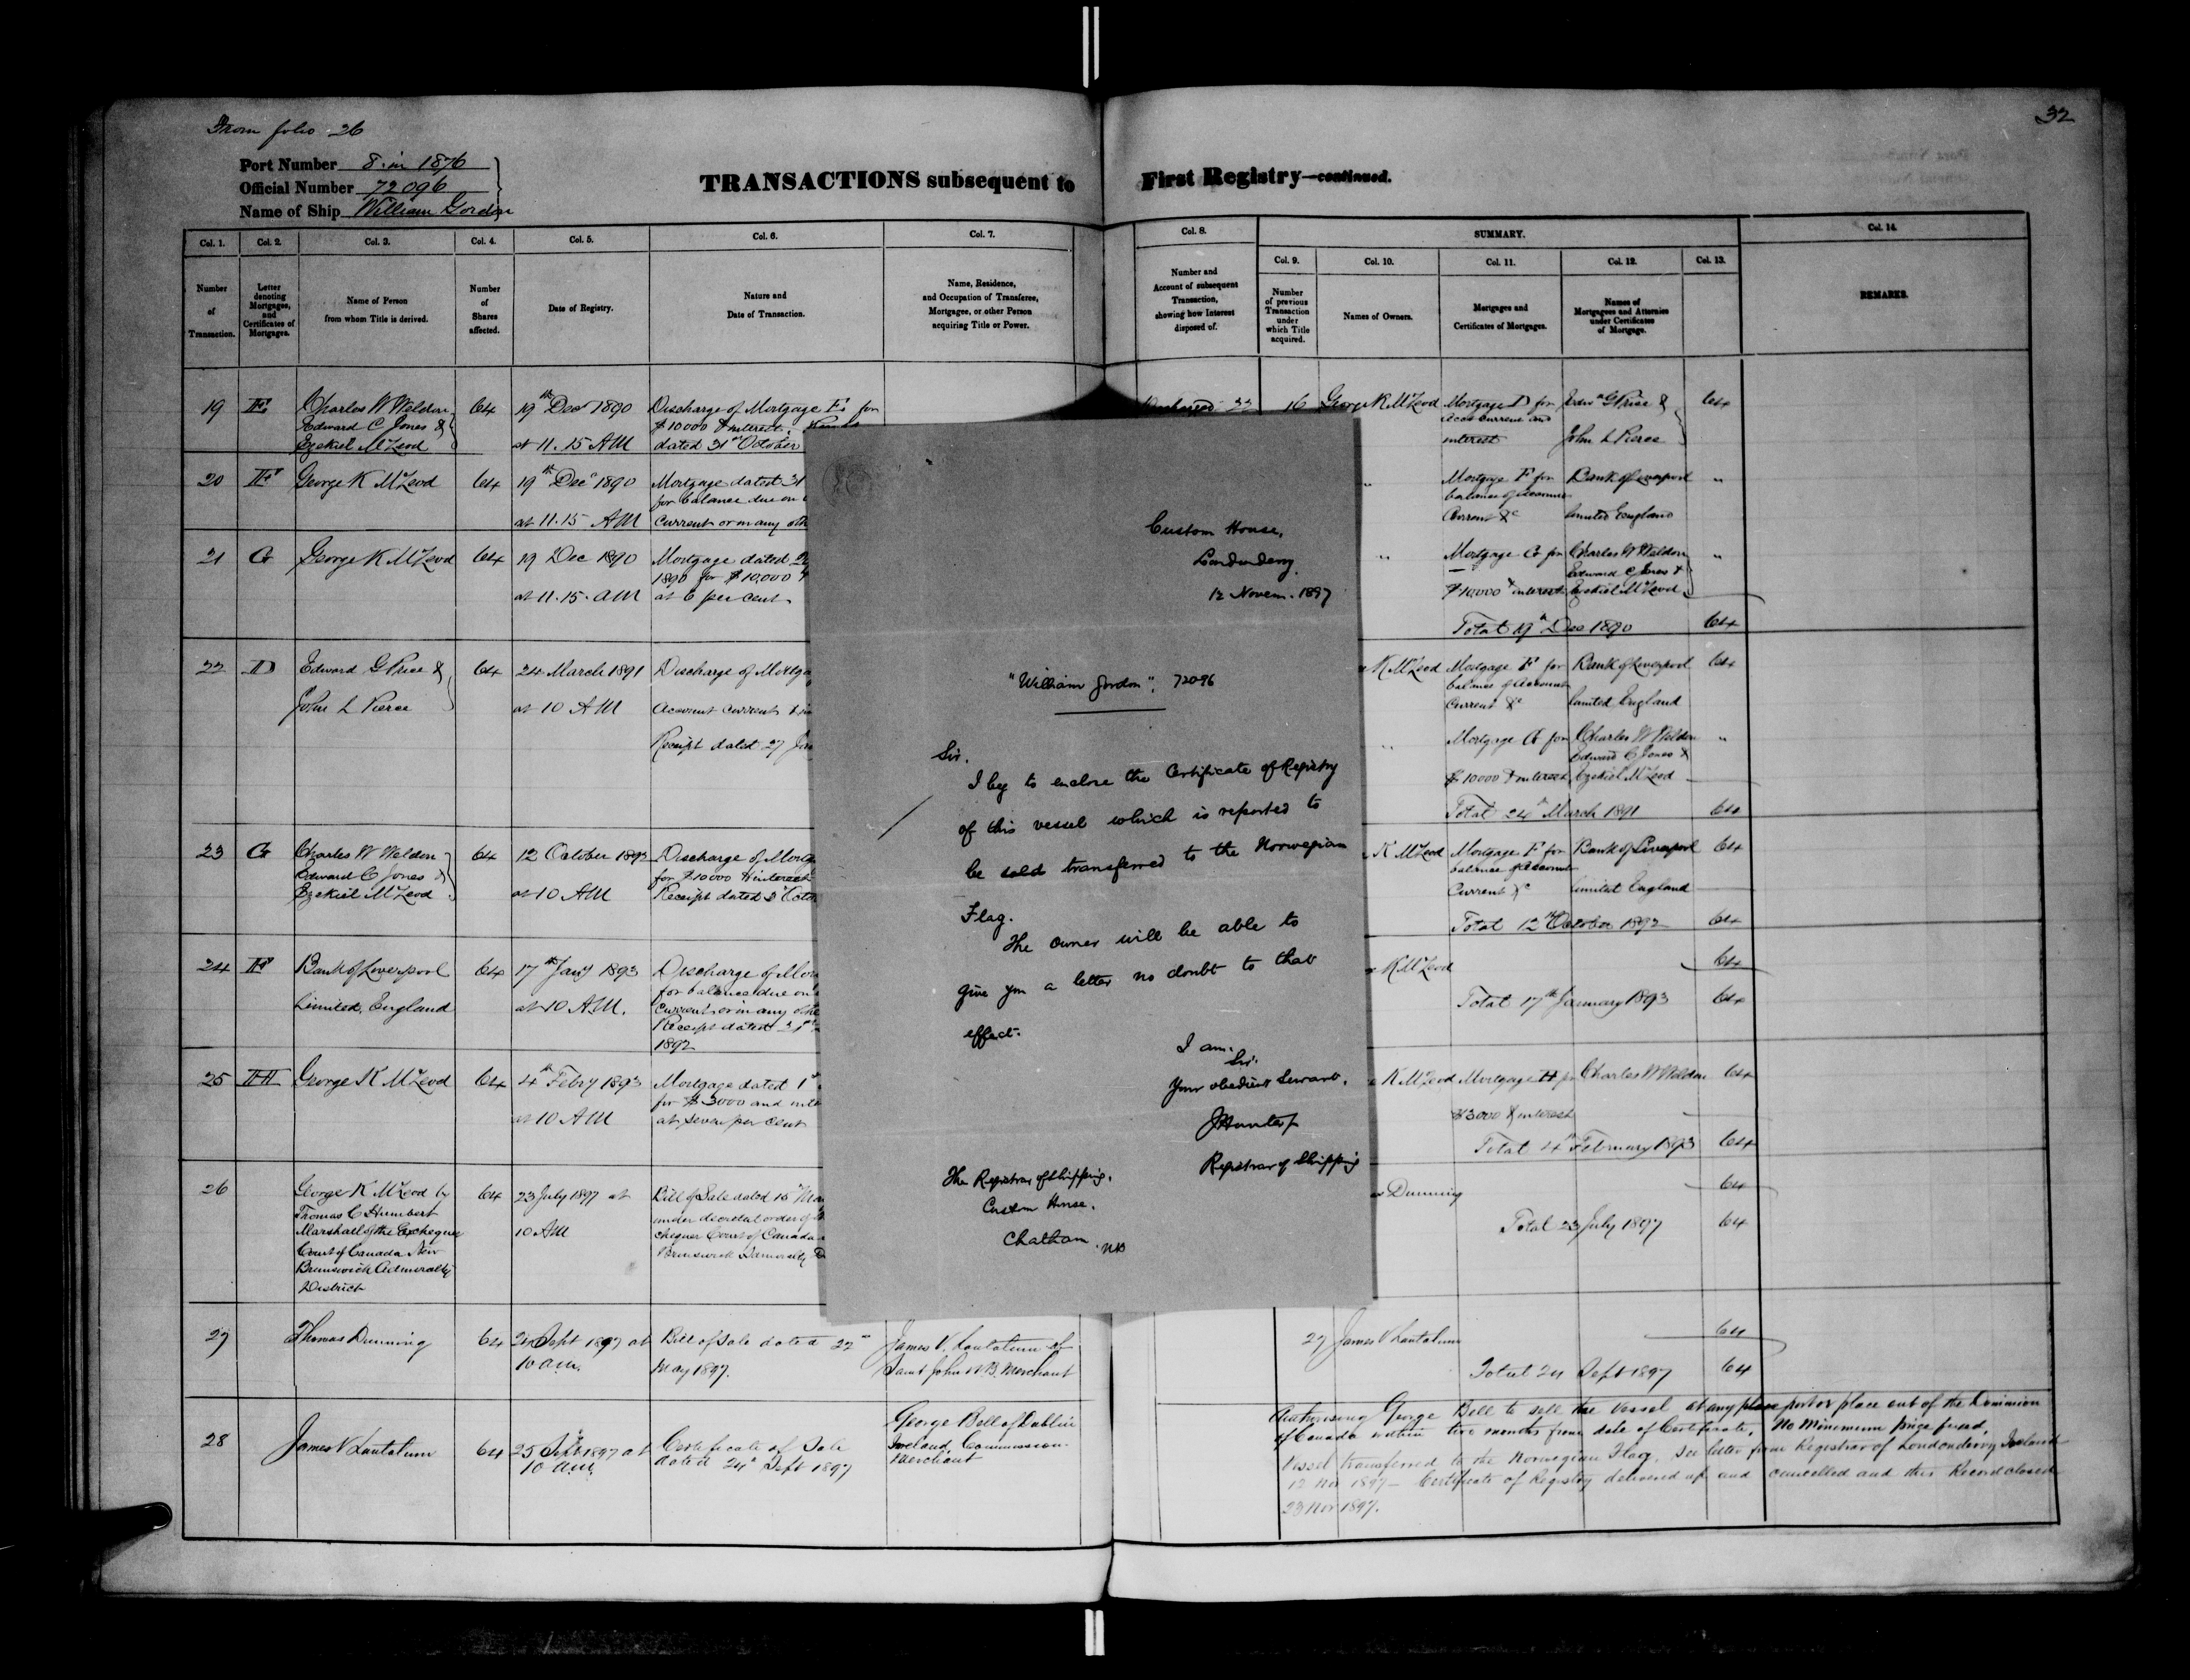 From folio 26
32
Port Number 8 in 1876
Official Number 72096
Name of Ship William Gordon
TRANSACTIONS subsequent to First Registry—continued.
Col. 1.
Number of Transaction.
Col. 2.
Letter denoting Mortgages, and Certificates of Mortgages.
Col. 3.
Name of Person from whom Title is derived.
Col. 4.
Number of Shares affected.
Col. 5.
Date of Registry.
Col. 6.
Nature and Date of Transaction.
Col. 7.
Name, Residence, and Occupation of Transferee, Mortgagee, or other Person acquiring Title or Power.
Col. 8.
Number and Account of subsequent Transaction, showing how Interest disposed of.
SUMMARY.
Col. 9.
Number of previous Transaction under which Title acquired.
Col. 10.
Names of Owners.
Col. 11.
Mortgages and Certificates of Mortgages.
Col. 12.
Names of Mortgagees and Attornies under Certificates of Mortgage.
Col. 13.
Col. 14.
REMARKS.
19 E Charles W Weldon
Edward C Jones &
Ezekiel McLeod
64
19th Decr 1890
at 11.15 AM
Discharge of Mortgage E for
$10000 & interest
dated 31st October
20 F George K McLeod
64
19th Decr 1890
at 11.15 AM
Mortgage dated 31
for balance due on
current or in any oth
21 G George K McLeod
64
19 Dec 1890
at 11.15 AM
Mortgage dated
1890 for $10,000
at 6 per cent
22 D Edward G Price &
John L Pierce
64
24 March 1891
at 10 AM
Discharge of Mortga
Account current & in
Receipt dated 27
23 G Charles W Weldon
Edward C Jones &
Ezekiel McLeod
64
12 October 1892
at 10 AM
Discharge of Mortg
for $10000 & interest
Receipt dated 3d Octo
24 F Bank of Liverpool
Limited, England
64
17th Jany 1893
at 10 AM.
Discharge of Mor
for balance due on
current or in any othe
Receipt dated 31st
1892
25 H George K McLeod
64
4th Febry 1893
at 10 AM
Mortgage dated 1st
for $3000 and inte
at seven per cent
26 George K McLeod by
Thomas C Humbert
Marshall of the Exchequer
Court of Canada New
Brunswick Admiralty
District
64
23 July 1897 at
10 AM
Bill of Sale dated 15th
under decretal order of
chequer Court of Canada
Brunswick Admiralty D
27 Thomas Dunning
64
24 Sept 1897 at
10 a.m.
Bill of Sale dated 22nd
May 1897.
James V. Lantalum of
Saint John N.B. Merchant
28 James V Lantalum
64
25 Sept 1897 at
10 a.m.
Certificate of Sale
dated 24th Sept 1897
George Bell of Dublin
Ireland, Commission
Merchant
Custom House,
Londonderry.
12 Novem. 1897
"William Gordon". 72096
Sir.
I beg to enclose the Certificate of Registry
of this vessel which is reported to
be sold transferred to the Norwegian
Flag.
The owner will be able to
give you a letter no doubt to that
effect.
I am.
Sir.
Your obedient Servant.
J Hunter
Registrar of Shipping
The Registrar of Shipping.
Custom House.
Chatham. NB
Discharged 22
16 George K McLeod
Mortgage D for
Acct Current and
interest
Edwd G Price &
John L Pierce
64
Mortgage F for
balance of Account
Current &c
Bank of Liverpool
limited England
"
Mortgage G for
$10,000 & interest
Charles W Weldon
Edward C Jones &
Ezekiel McLeod
"
Total 19th Dec 1890 64
K McLeod
Mortgage F for
balance of Account
Current &c
Bank of Liverpool
limited England
64
Mortgage G for
$10000 & interest
Charles W Weldon
Edward C Jones &
Ezekiel McLeod
"
Total 24th March 1891 64
K McLeod
Mortgage F for
balance of Account
Current &c
Bank of Liverpool
limited England
64
Total 12th October 1892 64
K McLeod 64
Total 17th January 1893 64
K McLeod
Mortgage H for
$3000 & interest
Charles W Weldon
64
Total 4th February 1893 64
Dunning 64
Total 23 July 1897 64
27 James V Lantalum 64
Total 24 Sept 1897 64
Authorising George Bell to sell the Vessel at any place port or place out of the Dominion
of Canada within two months from date of Certificate, No Minimum price fixed,
Vessel transferred to the Norwegian Flag, see letter from Registrar of Londonderry Ireland
12 Nov 1897 — Certificate of Registry delivered up and cancelled and this Record closed
23 Nov 1897.